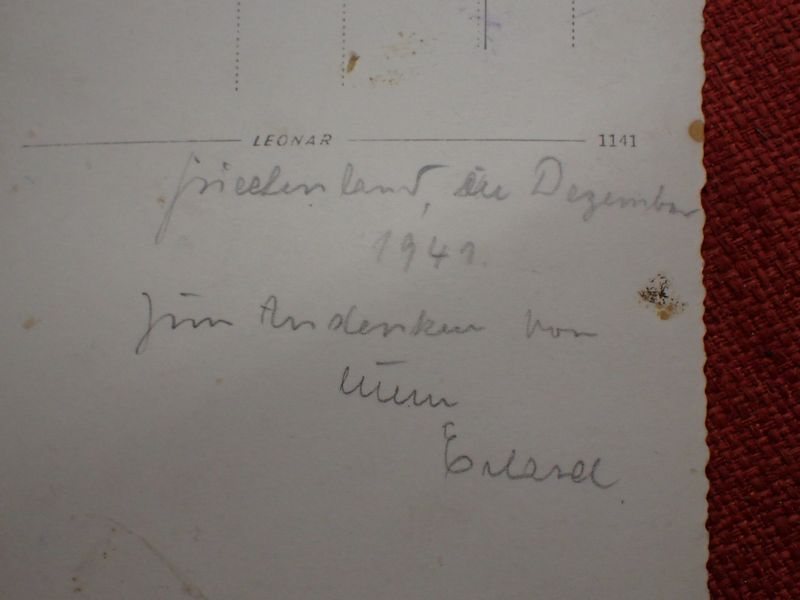 LEONAR 1141
Griechenland, im Dezember
1941.
Zum Andenken von